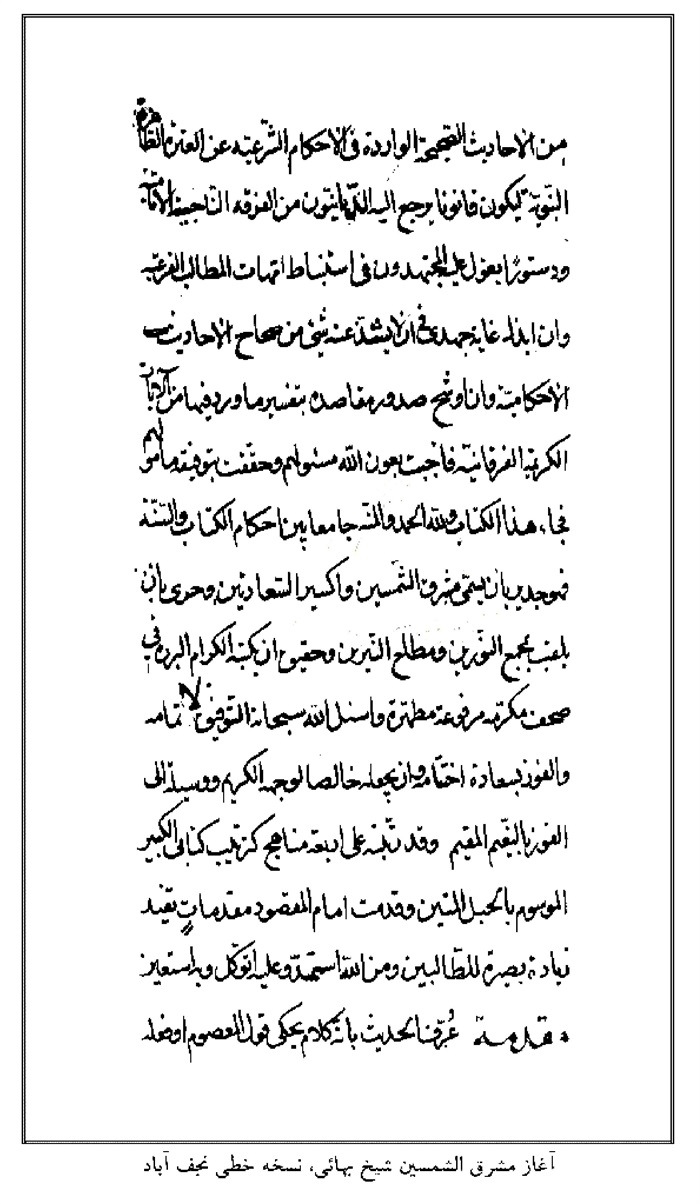 من الاحاديث الصحيحة الواردة فى الاحكام الشرعيه عن العترة الطاهرة
النبوية ليكون قانونا يرجع اليه الديانيون من الفرقه الناجية الامامية
ودستورًا يعول عليه المجتهدون فى استنباط امهات المطالب الفرعية
وان ابذل غاية جهدى فى ان لا يشذ عنه شئ من صحاح الاحاديث
الاحكامية وان اوشح صدور مقاصده بتفسير ما ورد فيها من الآيات
الكريمة الفرقانية فاجبت بعون الله مسئولهم وحققت بتوفيقه مأمولهم
فجاء هذا الكتاب ولله الحمد والمنه جامعا بين احكام الكتاب والسنة
فهو جدير بان يسمى مشرق الشمسين واكسير السعادتين وحرى بان
يلقب بمجمع النورين ومطلع النيرين وحقيق ان يكتبه الكرام البررة فى
صحف مكرمة مرفوعة مطهرة واسئل الله سبحانه التوفيق لاتمامه
والفوز بسعادة اختتامه وان يجعله خالصا لوجهه الكريم ووسيلة الى
الفوز بالنعيم المقيم وقد رتبته على اربعة مناهج كترتيب كتابى الكبير
الموسوم بالحبل المتين وقدمت امام المقصود مقدمات تفيد
زيادة بصيرة للطالبين ومن الله استمد وعليه اتوكل وبه استعين
مقدمة عُرّف الحديث بانه كلام يحكى قول المعصوم او فعله
آغاز مشرق الشمسين شيخ بهائى، نسخه خطى نجف آباد